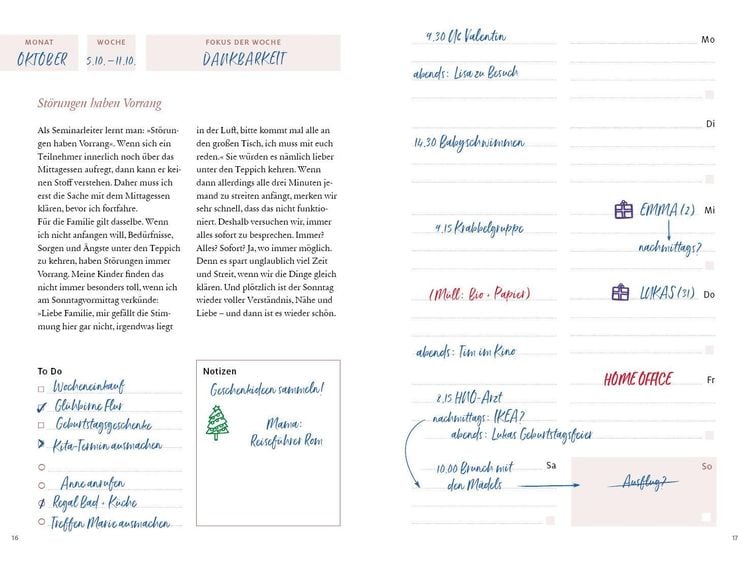 MONAT
OKTOBER
WOCHE
5.10. – 11.10.
FOKUS DER WOCHE
DANKBARKEIT
Störungen haben Vorrang
Als Seminarleiter lernt man: »Störun-
gen haben Vorrang«. Wenn sich ein
Teilnehmer innerlich noch über das
Mittagessen aufregt, dann kann er kei-
nen Stoff verstehen. Daher muss ich
erst die Sache mit dem Mittagessen
klären, bevor ich fortfahre.
Für die Familie gilt dasselbe. Wenn
ich nicht anfangen will, Bedürfnisse,
Sorgen und Ängste unter den Teppich
zu kehren, haben Störungen immer
Vorrang. Meine Kinder finden das
nicht immer besonders toll, wenn ich
am Sonntagvormittag verkünde:
»Liebe Familie, mir gefällt die Stim-
mung hier gar nicht, irgendwas liegt
in der Luft, bitte kommt mal alle an
den großen Tisch, ich muss mit euch
reden.« Sie würden es nämlich lieber
unter den Teppich kehren. Wenn
dann allerdings alle drei Minuten je-
mand zu streiten anfängt, merken wir
sehr schnell, dass das nicht funktio-
niert. Deshalb versuchen wir, immer
alles sofort zu besprechen. Immer?
Alles? Sofort? Ja, wo immer möglich.
Denn es spart unglaublich viel Zeit
und Streit, wenn wir die Dinge gleich
klären. Und plötzlich ist der Sonntag
wieder voller Verständnis, Nähe und
Liebe – und dann ist es wieder schön.
To Do
Wocheneinkauf
Glühbirne Flur
Geburtstagsgeschenke
Kita-Termin ausmachen
Anne anrufen
Regal Bad + Küche
Treffen Marie ausmachen
Notizen
Geschenkideen sammeln!
Mama:
Reiseführer Rom
16
9.30 Uhr Valentin
Mo
abends: Lisa zu Besuch
Di
14.30 Babyschwimmen
EMMA (2) Mi
9.15 Krabbelgruppe
nachmittags?
(Müll: Bio + Papier)
LUKAS (31) Do
abends: Tim im Kino
HOME OFFICE Fr
8.15 HNO-Arzt
nachmittags: IKEA?
abends: Lukas Geburtstagsfeier
10.00 Brunch mit
den Mädels
Sa
So
Ausflug?
17